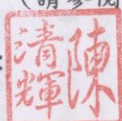 (請參閱
陳清輝